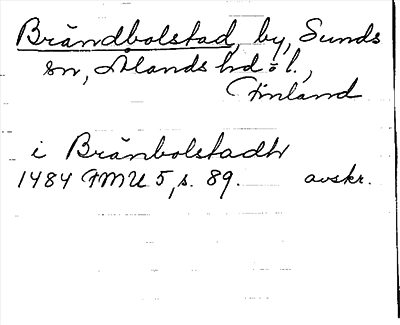 Brändbolstad, by, Sunds
sn, Ålands hd o l.,
Finland
i Bränbolstadh
1484 FMU 5, s. 89. avskr.